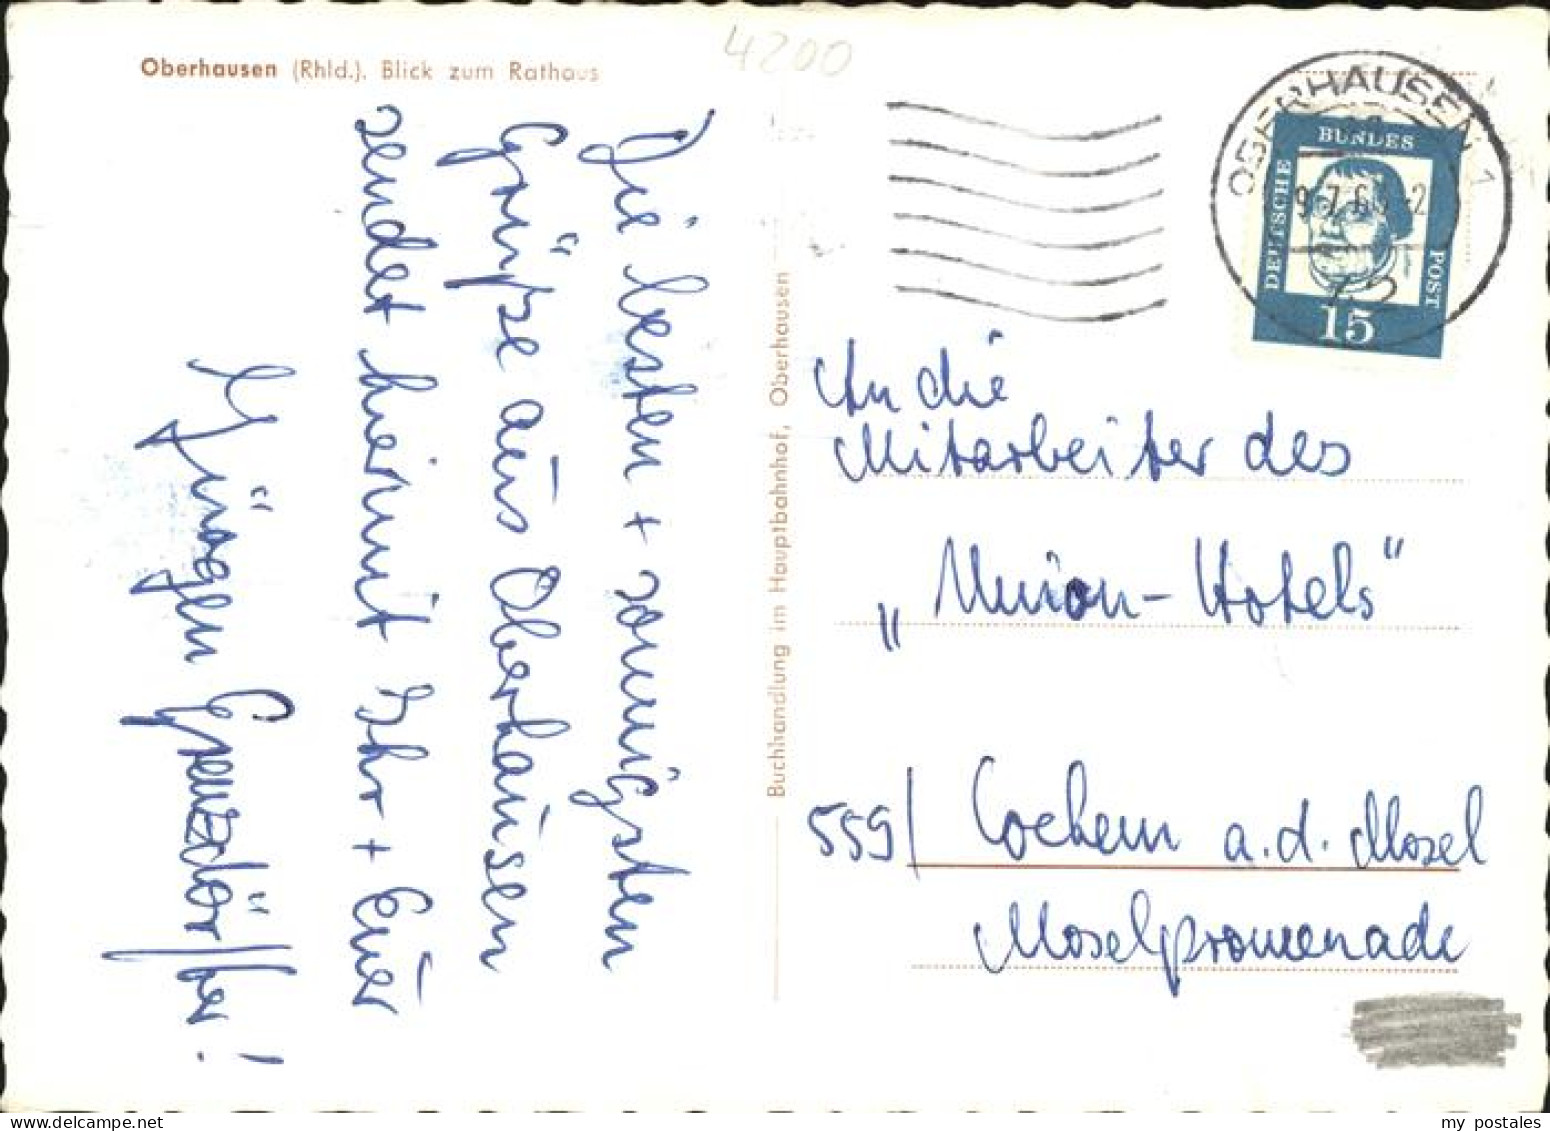 4200
Oberhausen (Rhld.). Blick zum Rathaus
Die besten + sonnigsten
Grüße aus Oberhausen
sendet hiermit Ihr + Euer
Jürgen
Buchhandlung im Hauptbahnhof, Oberhausen
OBERHAUSEN 1
DEUTSCHE BUNDESPOST
15
An die
Mitarbeiter des
„Union-Hotels“
559/ Cochem a.d. Mosel
Moselpromenade
my postales